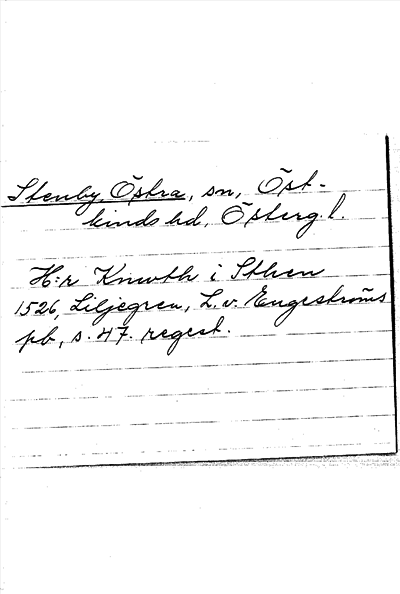 Stenby, Östra, sn, Öst-
kinds hd, Österg. l.
H:r Knwth i Sthen
1526, Liljegren, L. v. Engeströms
pb, s. 47. regest.